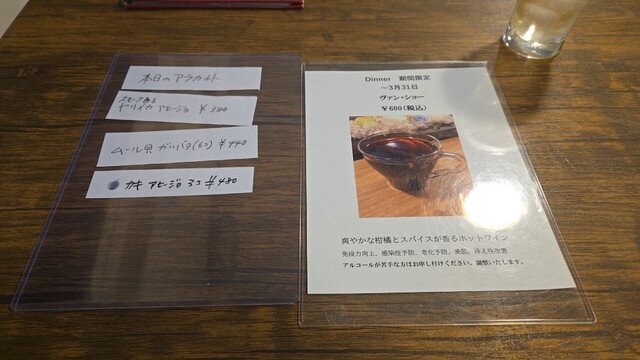 本日のアラカルト
スモーク香る
ヤリイカ アヒージョ ¥380
ムール貝 ガリバタ(6コ) ¥440
カキ アヒージョ 3コ ¥480
Dinner 期間限定
～3月31日
ヴァン・ショー
¥600(税込)
爽やかな柑橘とスパイスが香るホットワイン
免疫力向上、感染症予防、老化予防、美肌、冷え性改善
アルコールが苦手な方はお申し付けください。調整いたします。